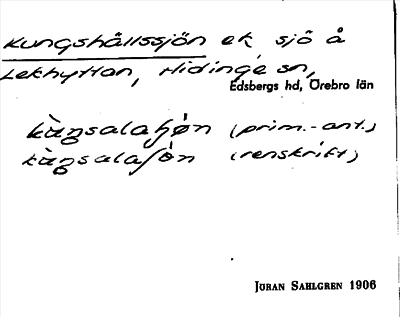 Kungshällssjön ek. sjö å
Lekhyttan, Hidinge sn,
Edsbergs hd, Örebro län
kùgsalaʃø̀n (prim.-ant.)
kùgsalaʃòn (renskrift)
JÖRAN SAHLGREN 1906